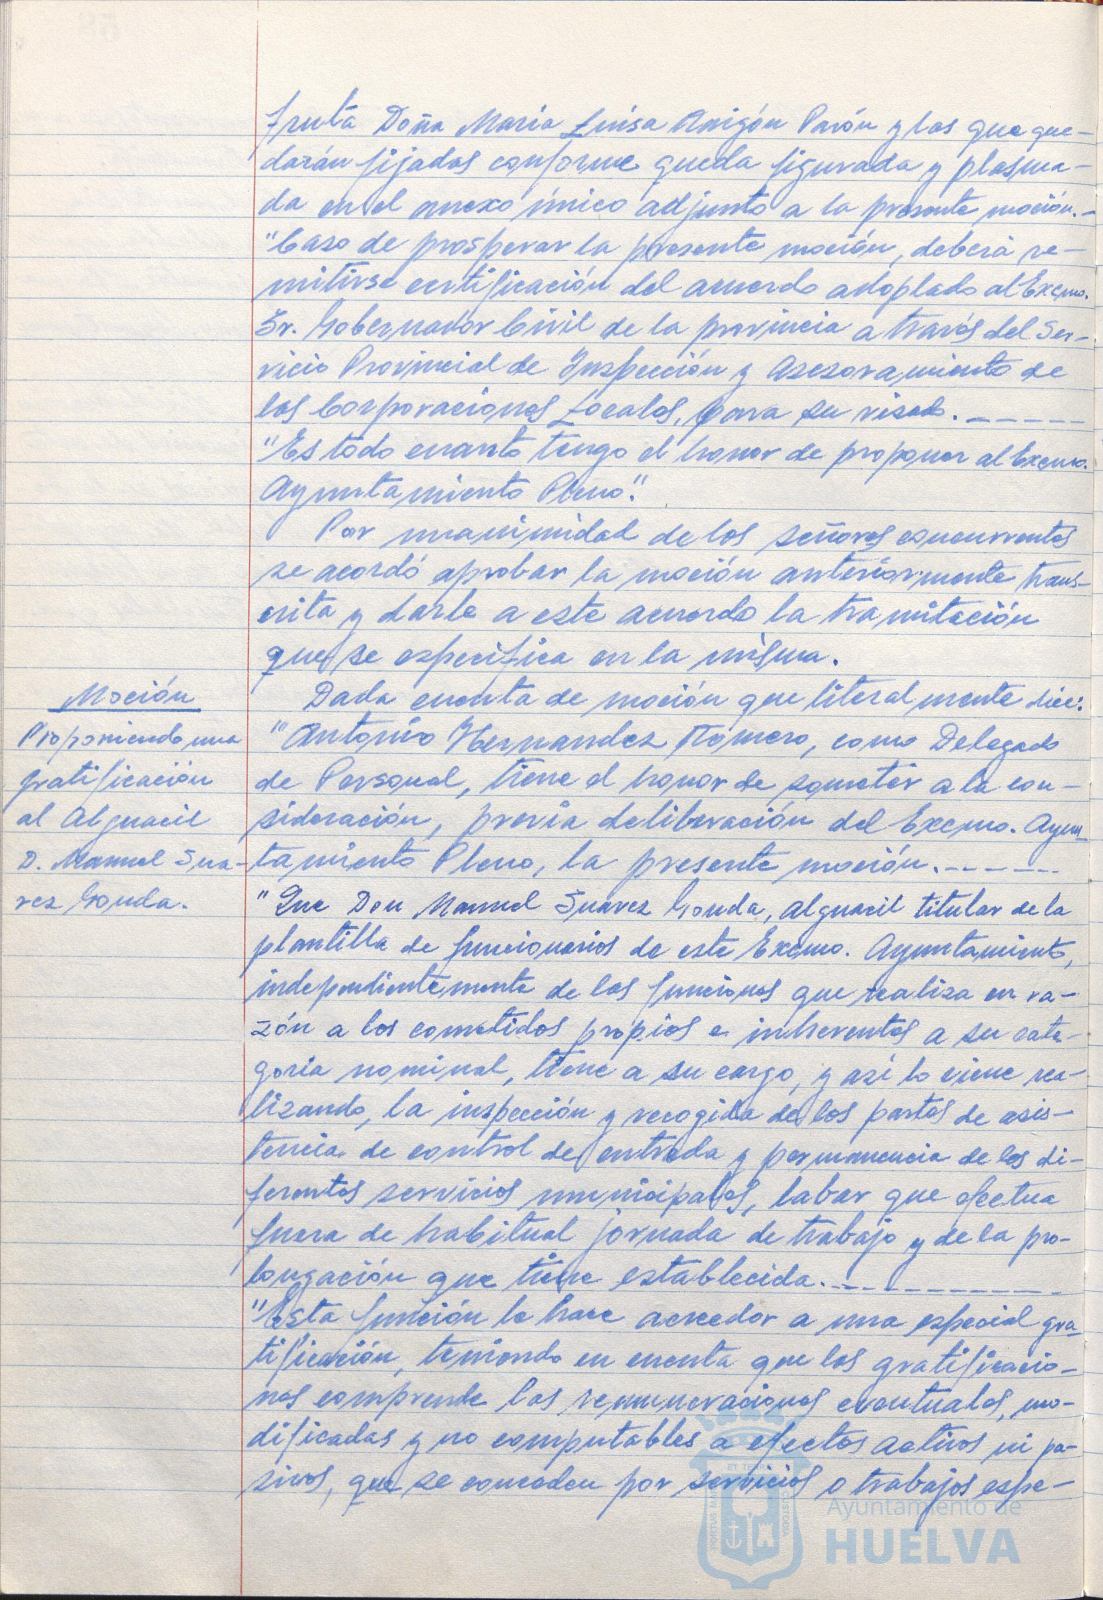 fruta Doña Maria Luisa Raigón Pavón y las que que-
darán fijadas conforme queda figurada y plasma-
da en el anexo único adjunto a la presente moción.-
"Caso de prosperar la presente moción, deberá re-
mitirse certificación del acuerdo adoptado al Excmo.
Sr. Gobernador Civil de la provincia a través del Ser-
vicio Provincial de Inspección y Asesoramiento de
las Corporaciones Locales, para su visado.------
"Es todo cuanto tengo el honor de proponer al Excmo.
Ayuntamiento Pleno".
Por unanimidad de los señores concurrentes
se acordó aprobar la moción anteriormente trans-
crita y darle a este acuerdo la tramitación
que se especifica en la misma.
Moción
Proponiendo una
gratificación
al Alguacil
D. Manuel Sua-
rez Gonda.
Dada cuenta de moción que literalmente dice:
"Antonio Hernandez Romero, como Delegado
de Personal, tiene el honor de someter a la con-
sideración, previa deliberación del Excmo. Ayun-
tamiento Pleno, la presente moción.------
"Que Don Manuel Suárez Gonda, alguacil titular de la
plantilla de funcionarios de este Excmo. Ayuntamiento,
independientemente de las funciones que realiza en ra-
zón a los cometidos propios e inherentes a su cate-
goria nominal, tiene a su cargo, y así lo viene rea-
lizando, la inspección y recogida de los partes de asis-
tencia de control de entrada y permanencia de los di-
ferentes servicios municipales, labor que efectua
fuera de habitual jornada de trabajo y de la pro-
longación que tiene establecida.------------
"Esta función le hace acreedor a una especial gra-
tificación, teniendo en cuenta que las gratificacio-
nes comprende las remuneraciones eventuales, mo-
dificadas y no computables a efectos activos ni pa-
sivos, que se conceden por servicios o trabajos espe-
Ayuntamiento de
HUELVA